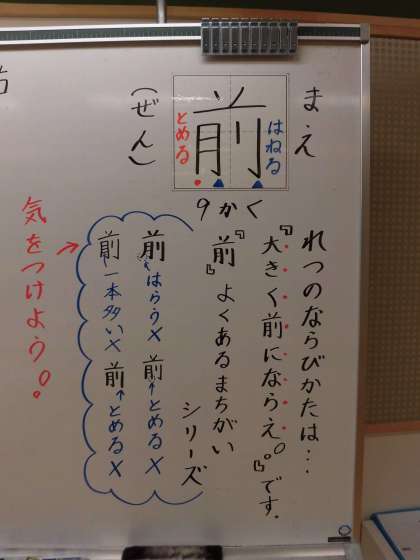 まえ
前
(ぜん)
はねる
とめる
9かく
れつのならびかたは…
『大きく前にならえ。』です。
『前』よくあるまちがい
シリーズ
前
はらう×
前
とめる×
前
一本多い×
前
とめる×
気をつけよう。